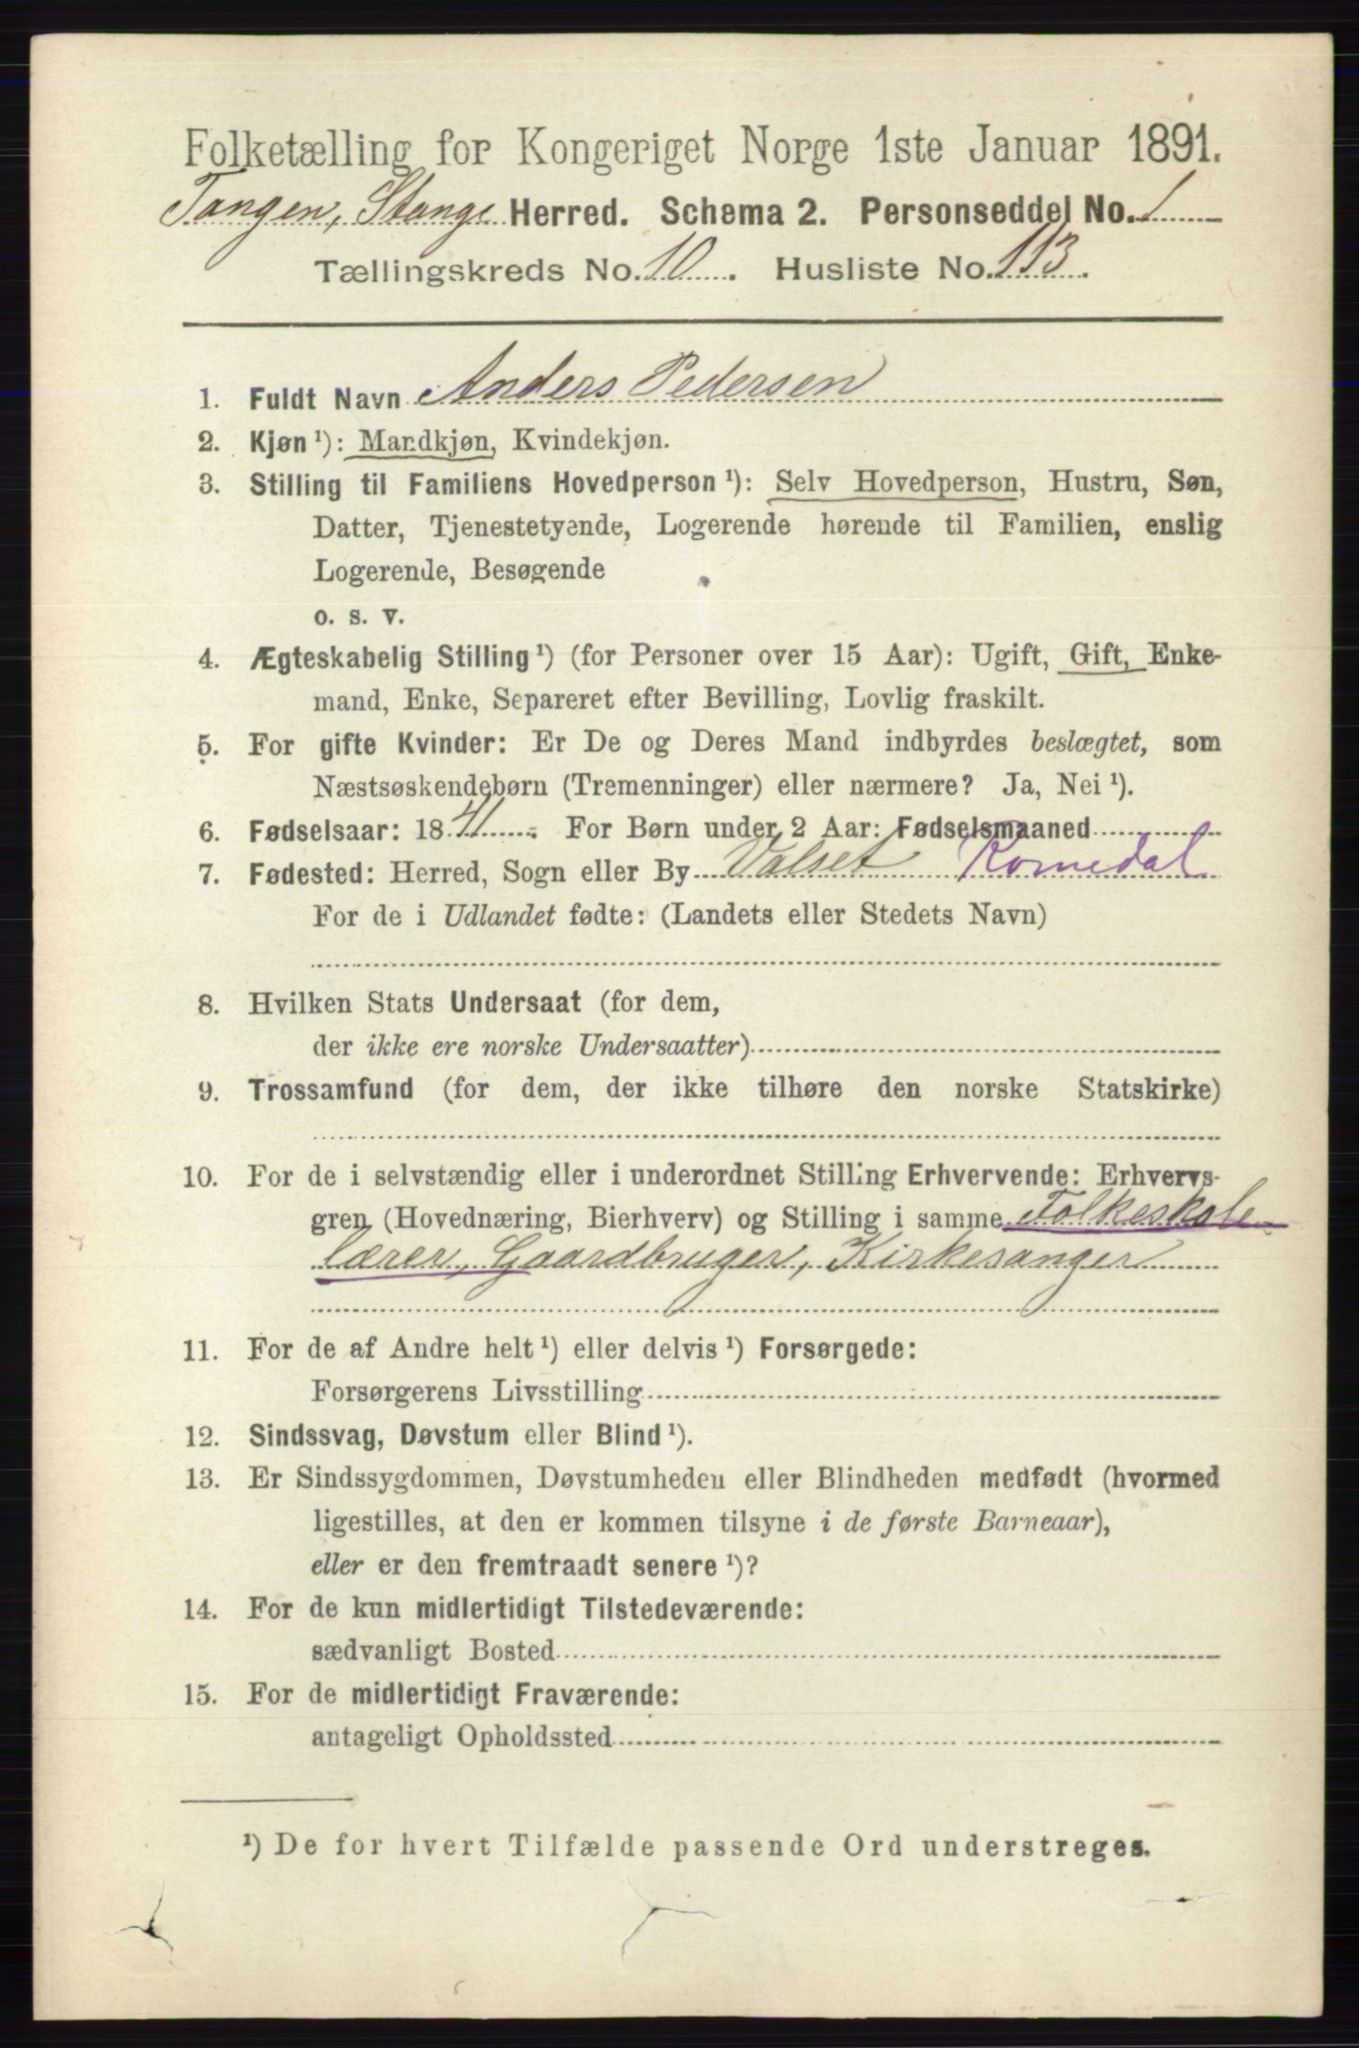 Folketælling for Kongeriget Norge 1ste Januar 1891.
Tangen, Stange Herred. Schema 2. Personseddel No. 1
Tællingskreds No. 10. Husliste No. 113.
1. Fuldt Navn Anders Pedersen
2. Kjøn ¹): Mandkjøn, Kvindekjøn.
3. Stilling til Familiens Hovedperson ¹): Selv Hovedperson, Hustru, Søn,
Datter, Tjenestetyende, Logerende hørende til Familien, enslig
Logerende, Besøgende
o. s. v.
4. Ægteskabelig Stilling ¹) (for Personer over 15 Aar): Ugift, Gift, Enke-
mand, Enke, Separeret efter Bevilling, Lovlig fraskilt.
5. For gifte Kvinder: Er De og Deres Mand indbyrdes beslægtet, som
Næstsøskendebørn (Tremenninger) eller nærmere? Ja, Nei ¹).
6. Fødselsaar: 1841. For Børn under 2 Aar: Fødselsmaaned
7. Fødested: Herred, Sogn eller By Valset Romedal
For de i Udlandet fødte: (Landets eller Stedets Navn)
8. Hvilken Stats Undersaat (for dem,
der ikke ere norske Undersaatter)
9. Trossamfund (for dem, der ikke tilhøre den norske Statskirke)
10. For de i selvstændig eller i underordnet Stilling Erhvervende: Erhvervs-
gren (Hovednæring, Bierhverv) og Stilling i samme Folkeskole
lærer, Gaardbruger, Kirkesanger
11. For de af Andre helt ¹) eller delvis ¹) Forsørgede:
Forsørgerens Livsstilling
12. Sindssvag, Døvstum eller Blind ¹).
13. Er Sindssygdommen, Døvstumheden eller Blindheden medfødt (hvormed
ligestilles, at den er kommen tilsyne i de første Barneaar),
eller er den fremtraadt senere ¹)?
14. For de kun midlertidigt Tilstedeværende:
sædvanligt Bosted
15. For de midlertidigt Fraværende:
antageligt Opholdssted
¹) De for hvert Tilfælde passende Ord understreges.